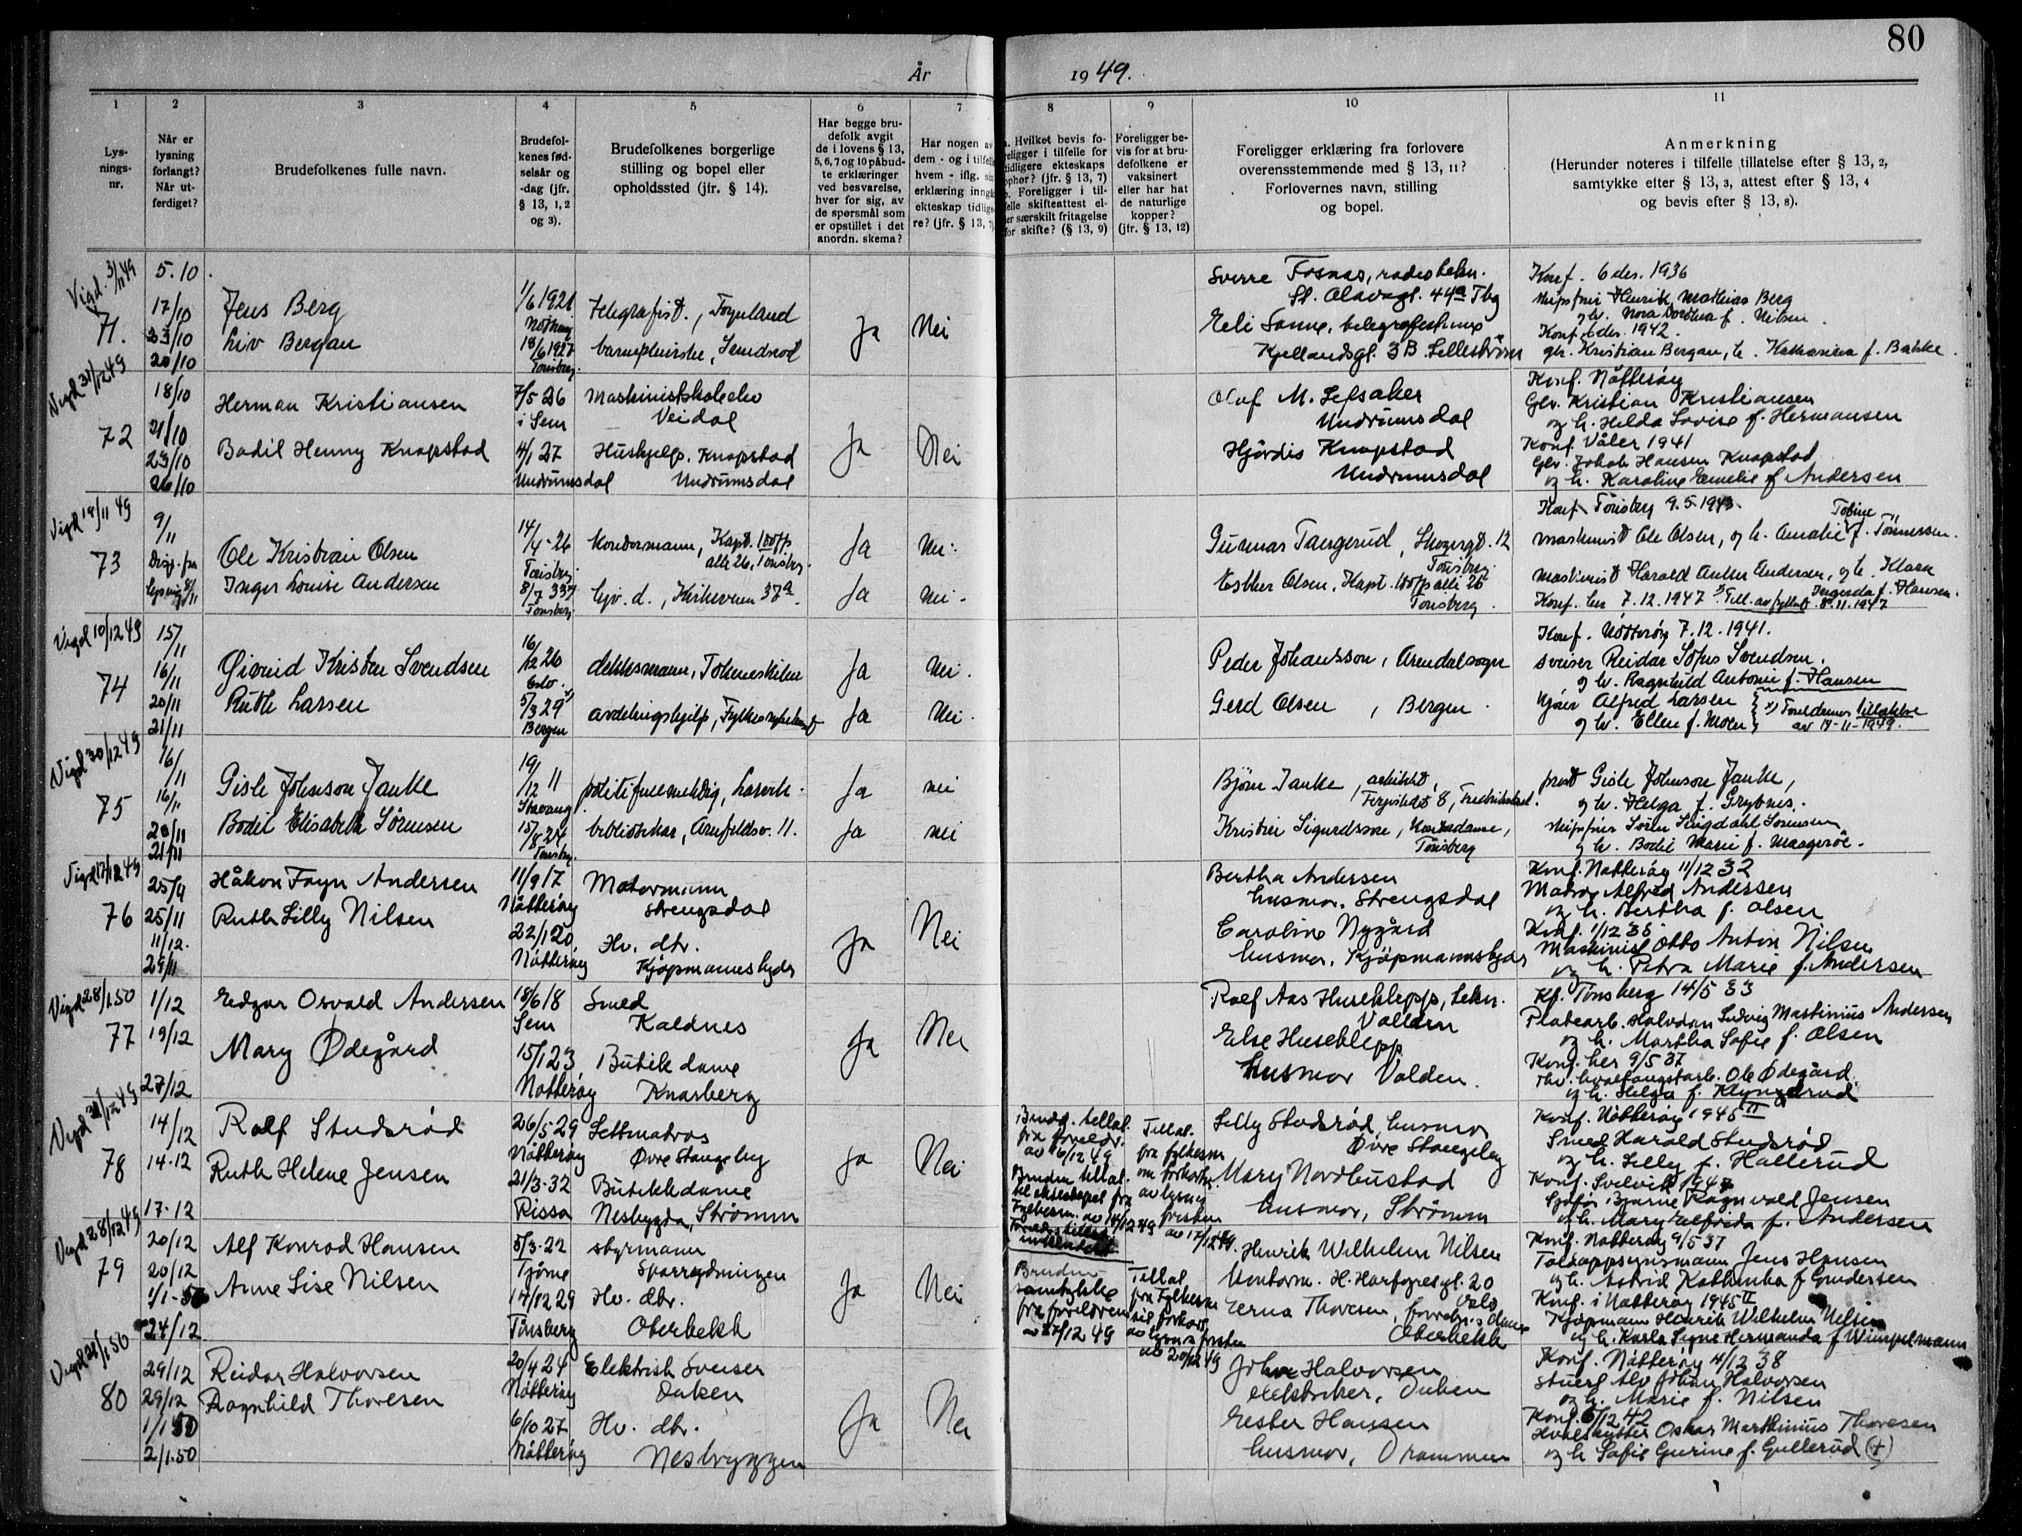 80
År 1949.
1 2 3 4 5 6 7 8 9 10 11
Lys-
nings-
nr.
Når er
lysning
forlangt?
Når ut-
ferdiget?
Brudefolkenes fulle navn.
Brudefol-
kenes fød-
selsår og
-dag (jfr.
§ 13, 1, 2
og 3).
Brudefolkenes borgerlige
stilling og bopel eller
opholdssted (jfr. § 14).
Har begge bru-
defolk avgit
de i lovens § 13,
5, 6, 7 og 10 påbud-
te erklæringer
ved besvarelse,
hver for sig, av
de spørsmål som
er opstillet i det
anordn. skema?
Har nogen av
dem - og i tilfelle
hvem - iflg. sin
erklæring inngå
ekteskap tidlige-
re? (jfr. § 13, 7)
Hvilket bevis fo-
religger i tilfelle for
tidligere ekteskaps
ophør? (jfr. § 13, 7)
Foreligger i til-
felle skifteattest el-
er særskilt fritagelse
for skifte? (§ 13, 9)
Foreligger be-
vis for at bru-
defolkene er
vaksinert
eller har hat
de naturlige
kopper?
(jfr. § 13, 12)
Foreligger erklæring fra forlovere
overensstemmende med § 13, 11?
Forlovernes navn, stilling
og bopel.
Anmerkning
(Herunder noteres i tilfelle tillatelse efter § 13, 2,
samtykke efter § 13, 3, attest efter § 13, 4
og bevis efter § 13, 8).
Vigd. 3/11 49
71.
5.10
17/10
23/10
20/10
Jens Berg
Liv Bergan
1/6 1921
18/6 1927
Tønsberg.
telegrafist, Føynland
barnepleierske,
Ja
Nei
Sverre Fosnas,
St. Olavsgt. 44a Tbg
Eli Sanne,
Kjellandsgt. 3B Lillestrøm
Konf. 6 des. 1936
Henrik Mathias Berg
og h. Nora Dorthea f. Nilsen
Konf. 6 des. 1942.
gb. Kristian Bergan, h. Katharina f. Bakke.
Vigd 31/12 49
72
18/10
21/10
23/10
26/10
Herman Kristiansen
Bodil Henny Knapstad
7/5 26
i Sem
4/1 27
Undrumsdal
Maskinistskoleelev
Veidal
Hushjelp. Knapstad
Undrumsdal
Ja
Nei
Olaf M. Sefsaker
Undrumsdal
Hjørdis Knapstad
Undrumsdal
Konf. Nøtterøy
Gbr. Kristian Kristiansen
og h. Hilda Lovise f. Hermansen
Konf Våler 1941
Gbr. Jakob Hansen Knapstad
og h. Karoline Emelie f Andersen
Vigd 19/11 49
73
9/11
Disp. fra
lysning 8/11
Ole Kristian Olsen
Inger Louise Andersen
14/4-26
Tønsberg.
8/7 33
Tønsberg.
kontormann, Kapt.
alle 26, Tønsberg.
hjv. d., Kirkeveien 37a.
Ja
Ja
Nei.
Nei.
Gunnar Taugerud, 12
Tønsberg.
Esther Olsen, Kapt. alle 26
Tønsberg.
Konf. Tønsberg 9.5.1943.
maskinist Ole Olsen, og h. Amalie Tobine f. Tønnessen.
maskinist Harald Anker Andersen, og h. Klara
Ingerda f. Hansen.
Konf. her 7.12.1947
Vigd 10/12 49
74
15/11
16/11
20/11
21/11
Øivind Kristen Svendsen
Ruth Larsen
16/12 26
Oslo.
5/3 29
Bergen
dekksmann, Tolmeskilen
avdelingshjelp, Fylkessykehuset
Ja
Ja
Nei.
Nei.
Peder Johansson, Arendalsoger
Gerd Olsen, Bergen.
Konf. Nøtterøy 7.12.1941.
sveiser Reidar Sofus Svendsen.
og h. Ragnhild Antonie f. Hansen
Alfred Larsen
og h. Ellen f. Moen
Foreldrenes tillatelse
av 14-11-1949.
Vigd 30/12 49
75
16/11
16/11
20/11
21/11
Gisle Johnson Janke
Bodil Elisabeth Sørensen
19/12 11
Stavanger
15/8 24
Tønsberg.
politifullmektig, Larvik.
bibliotekar, 11.
Ja
Ja
nei
nei
Bjørn Janke, arkitekt,
8, Fredrikstad.
Kristen Sigurdssone,
Tønsberg
prost Gisle Johnson Janke,
og h. Helga f. Grytnes.
Søren Sørensen
og h. Bodil Marie f. Maagerøe.
Vigd 17/12 49
76
25/11
25/11
11/12.
29/11
Håkon Fayn Andersen
Ruth Lilly Nilsen
11/9 17
Nøtterøy
22/1 20
Nøtterøy
Motormann
Strengsdal
Hv. dtr.
Kjøpmannskjær
Ja
Nei
Bertha Andersen
husmor, Strengsdal
Caroline Nygård
husmor, Kjøpmannskjær
Konf. Nøtterøy 11/12 32
Matros Alfred Andersen
og h. Bertha f. Olsen
Konf. 1/12 35
Maskinist Otto Anton Nilsen
og h. Petra Marie f. Andersen
Vigd 28/1 50
77
1/12
19/12
27/12
Edgar Osvald Andersen
Mary Ødegård
18/6 18
Sem
15/1 23
Nøtterøy
Smed
Kaldnes
Butikkdame
Knarberg
Ja
Nei
Rolf Aas Huseklepp,
Vallden
Else Huseklepp
husmor Volden.
Kf. Tønsberg 14/5 33
Platearb. Halvdan Ludvig Martinius Andersen
og h. Martha Sofie f. Olsen
Konf. her 9/5 37
hvalfangstarb. Ole Ødegård.
og h. Helga f. Klyngerud
Vigd 31/12 49
78
14/12
14.12
17.12
Rolf Studsrød
Ruth Helene Jensen
26/5-29
Nøtterøy
21/3-32
Rissa
Lettmatros
Øvre Stangeby
Butikkdame
Nesbygda, Strømm
Ja
Nei
Brudg. tillat.
fra foreldr.
av 16/12 49
Bruden tillat.
til ekteskapet fra
Fylkesm. av 14/12 49
Tillat.
fra fylkesm
om forkortn.
av lysnings
fristen
av 17/12 49.
Lilly Studsrød, husmor
Øvre Stangeby
Mary Nordbustad
husmor, Strømm
Konf. Nøtterøy 1945 II
Smed Harald Studsrød
og h. Lilly f. Hallerud
Konf. Svelvik 1947
Sjåfør Bjarne Ragnvald Jensen
og h. Mary Elfrida f. Andersen
Vigd 28/12 49
79
20/12
20/12
1/1-50
24/12
Alf Konrad Hansen
Anne Lise Nilsen
5/3-22
Tjøme
14/12 29
Tønsberg
styrmann
Sparrydningen
Hv. dtr.
Oterbekk
Ja
Nei
Bruden
samtykke
fra foreldrene
av 27/12 49
Tillat.
fra Fylkesm
til forkort.
av lysn.s fristen
av 20/12 49
Henrik Wilhelm Nilsen
Kontorm. H. Harfagresgt. 20
Oslo
Erna Thoresen,
Oterbekk
Konf. Nøtterøy 9/5 37
Tolloppsynsmann Jens Hansen
og h. Astrid Kathinka f Gundersen
Konf. i Nøtterøy 1945 II
Kjøpmann Henrik Wilhelm Nilsen
og h. Karla Signe Hermanda f Wimpelmann
Vigd 28/1 50
80
29/12
29/12
1/1 50
2/1.50
Reidar Halvorsen
Ragnhild Thoresen
20/4 24
Nøtterøy
6/10 27
Nøtterøy
Elektrisk Sveiser
Duken
Hv. dtr.
Nesbryggen
Ja
Nei
John Halvorsen
elektriker, Duken
Ester Hansen
husmor, Drammen
Konf. Nøtterøy 4/12 38
Stuert Alv Johan Halvorsen
og h. Marie f. Nilsen
Konf. 6/12 42
Hvalskytter Oskar Marthinius Thoresen
og h Sofie Gurine f. Gullerud (+)